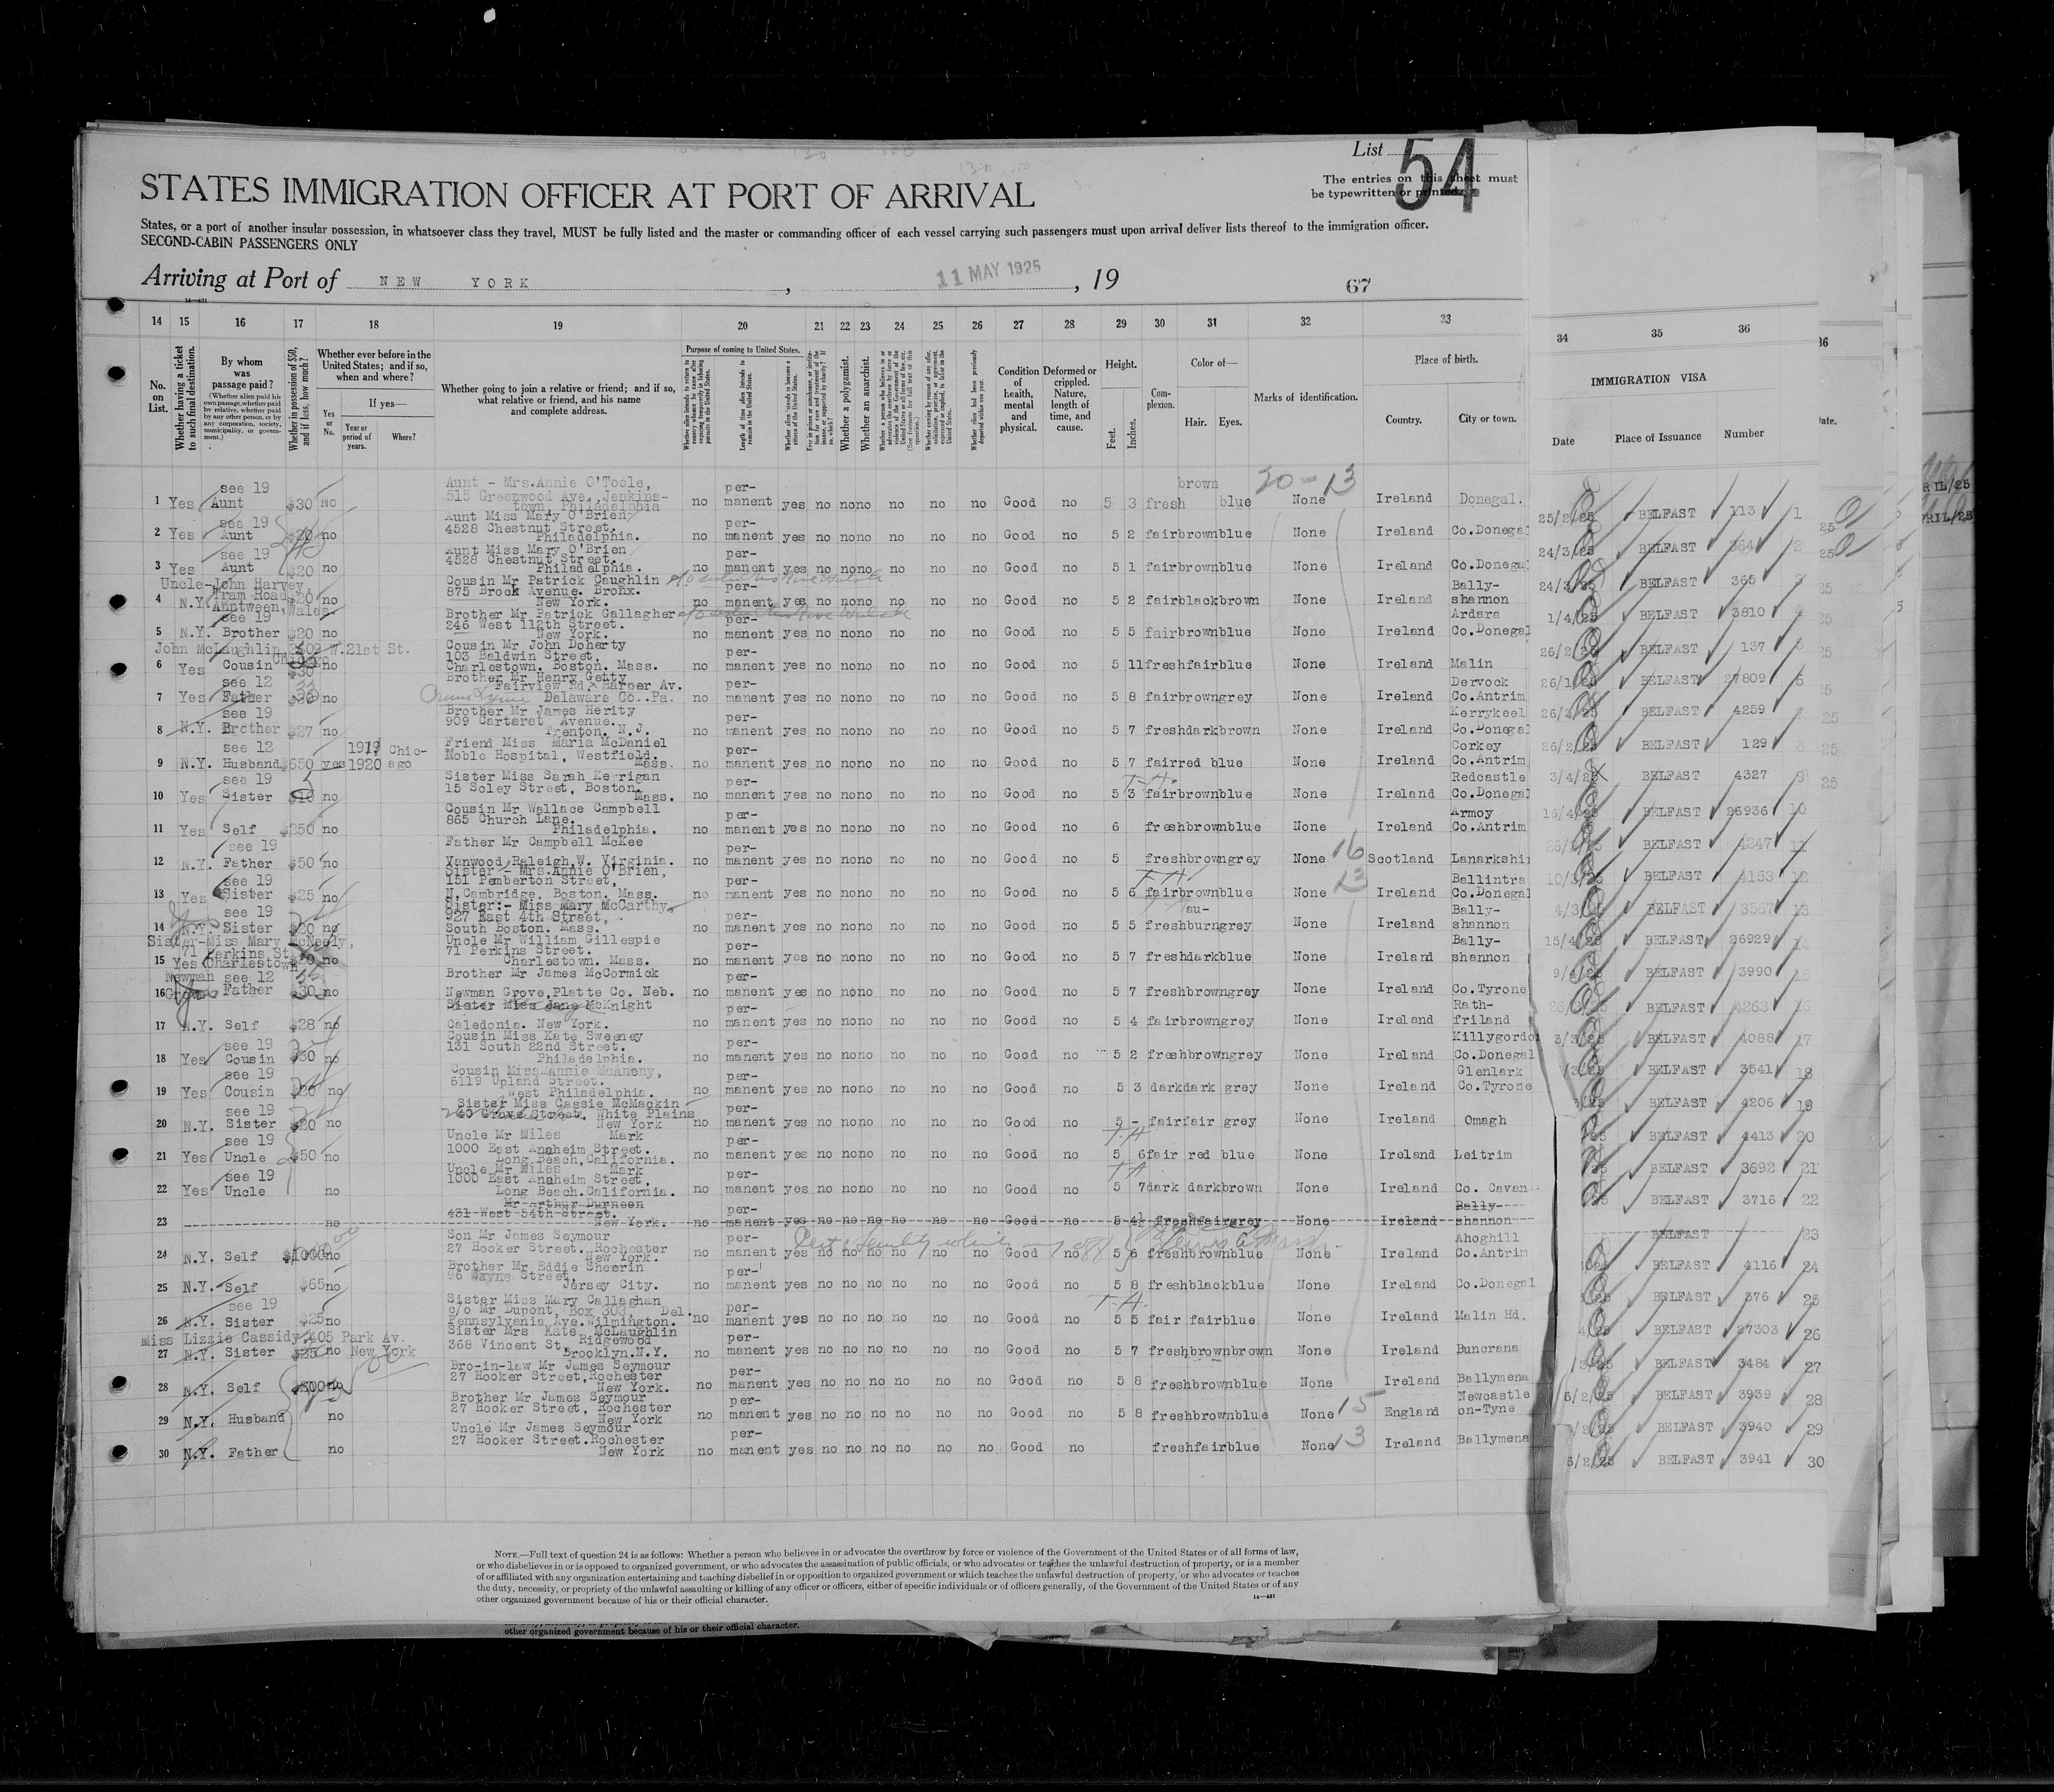 List 54
The entries on this sheet must
be typewritten or printed.
STATES IMMIGRATION OFFICER AT PORT OF ARRIVAL
States, or a port of another insular possession, in whatsoever class they travel, MUST be fully listed and the master or commanding officer of each vessel carrying such passengers must upon arrival deliver lists thereof to the immigration officer.
SECOND-CABIN PASSENGERS ONLY
Arriving at Port of NEW YORK, 11 MAY 1925, 19
67
14—431
14 15 16 17 18 19 20 21 22 23 24 25 26 27 28 29 30 31 32 33 34 35 36
No. on List.
Whether having a ticket to such final destination.
By whom was passage paid?
(Whether alien paid his own passage, whether paid by relative, whether paid by any other person, or by any corporation, society, municipality, or government.)
Whether in possession of $50, and if less, how much?
Whether ever before in the United States; and if so, when and where?
If yes—
Yes or No.
Year or period of years.
Where?
Whether going to join a relative or friend; and if so, what relative or friend, and his name and complete address.
Purpose of coming to United States.
Length of time alien intends to remain in the United States.
Whether alien intends to become a citizen of the United States.
Whether a polygamist.
Whether an anarchist.
Condition of health, mental and physical.
Deformed or crippled. Nature, length of time, and cause.
Height.
Feet. Inches.
Complexion.
Color of—
Hair. Eyes.
Marks of identification.
Place of birth.
Country. City or town.
IMMIGRATION VISA
Date Place of Issuance Number
20-13
1 Yes see 19 Aunt $30 No Aunt - Mrs.Annie O'Toole, 515 Greenwood Ave.,Jenkins- town, Philadelphia no per- manent yes no no no no no no Good no 5 3 fresh brown blue None Ireland Donegal. 25/2/25 BELFAST 113 1
2 Yes see 19 Aunt $20 no Aunt Miss Mary O'Brien, 4528 Chestnut Street. Philadelphia. no per- manent yes no no no no no no Good no 5 2 fair brown blue None Ireland Co.Donegal 24/3/25 BELFAST 364 2
3 Yes see 19 Aunt $20 no Aunt Miss Mary O'Brien 4528 Chestnut Street. Philadelphia. no per- manent yes no no no no no no Good no 5 1 fair brown blue None Ireland Co.Donegal 24/3/25 BELFAST 365 3
4 N.Y. Uncle-John Harvey Tram Road, Wales $20 no Cousin Mr Patrick Caughlin 875 Brook Avenue. Bronx. New York. no per- manent yes no no no no no no Good no 5 2 fair black brown None Ireland Bally- shannon 1/4/25 BELFAST 3810 4
5 N.Y. see 19 Brother $20 no Brother Mr Patrick Gallagher 246 West 112th Street. New York. no per- manent yes no no no no no no Good no 5 5 fair brown blue None Ireland Ardara Co.Donegal 26/2/25 BELFAST 137
6 Yes John McLaughlin, W.21st St. Cousin $30 no Cousin Mr John Doherty 103 Baldwin Street, Charlestown. Boston. Mass. no per- manent yes no no no no no no Good no 5 11 fresh fair blue None Ireland Malin BELFAST 27809 6
7 Yes see 12 Father no Brother Mr Henry Getty Fairview Rd. Harper Av. Delaware Co..Pa. no per- manent yes no no no no no no Good no 5 8 fair brown grey None Ireland Dervock Co.Antrim BELFAST 4259
8 N.Y. see 19 Brother $27 no Brother Mr James Herity 909 Carteret Avenue. Trenton. N.J. no per- manent yes no no no no no no Good no 5 7 fresh dark brown None Ireland Kerrykeel Co.Donegal BELFAST 129 8
9 N.Y. see 12 Husband $650 yes 1919 1920 Chic- ago Friend Miss Maria McDaniel Noble Hospital, Westfield. Mass. no per- manent yes no no no no no no Good no 5 7 fair red blue None Ireland Corkey Co.Antrim 3/4/25 BELFAST 4327 9
10 Yes see 19 Sister $10 no Sister Miss Sarah Kerrigan 15 Soley Street, Boston. Mass. no per- manent yes no no no no no no Good no 5 3 fair brown blue None Ireland Redcastle Co.Donegal 16/4/25 BELFAST 26936 10
11 Yes Self $250 no Cousin Mr Wallace Campbell 865 Church Lane. Philadelphia. no per- manent yes no no no no no no Good no 6 fresh brown blue None Ireland Armoy Co.Antrim BELFAST 4247 11
12 N.Y. see 19 Father $50 no Father Mr Campbell McKee Vanwood,Raleigh,W. Virginia. no per- manent yes no no no no no no Good no 5 fresh brown grey None 16 Scotland Lanarkshi BELFAST 4153 12
13 Yes see 19 Sister $25 no Sister - Mrs.Annie O'Brien, 151 Pemberton Street, N.Cambridge, Boston. Mass. no per- manent yes no no no no no no Good no 5 6 fair brown blue None 13 Ireland Ballintra Co.Donegal BELFAST 3567 13
14 N.Y. see 19 Sister $20 no Sister:- Miss Mary McCarthy 927 East 4th Street, South Boston. Mass. no per- manent yes no no no no no no Good no 5 5 fresh au- burn grey None Ireland Bally- shannon 15/4/25 BELFAST 26929 14
15 Yes Sister-Miss Mary McNeely, 71 Perkins St Charlestown no Uncle Mr William Gillespie 71 Perkins Street. Charlestown. Mass. no per- manent yes no no no no no no Good no 5 7 fresh dark blue None Ireland Bally- shannon BELFAST 3990 15
16 Newman Grove see 12 Father $30 no Brother Mr James McCormick Newman Grove,Platte Co. Neb. no per- manent yes no no no no no no Good no 5 7 fresh brown grey None Ireland Co.Tyrone BELFAST 4263 16
17 N.Y. Self $28 no Sister Miss Jane McKnight Caledonia. New York. no per- manent yes no no no no no no Good no 5 4 fair brown grey None Ireland Rath- friland 3/3/25 BELFAST 4088 17
18 Yes see 19 Cousin $30 no Cousin Miss Kate Sweeney 131 South 22nd Street. Philadelphia. no per- manent yes no no no no no no Good no 5 2 fresh brown grey None Ireland Killygordon Co.Donegal BELFAST 3541 18
19 Yes see 19 Cousin $20 no Cousin Miss Annie McAneny, 6119 Upland Street. West Philadelphia. no per- manent yes no no no no no no Good no 5 3 dark dark grey None Ireland Glenlark Co.Tyrone BELFAST 4206 19
20 N.Y. see 19 Sister $20 no Sister Miss Cassie McMackin 40 Grove Street, White Plains New York no per- manent yes no no no no no no Good no 5 - fair fair grey None Ireland Omagh BELFAST 4413 20
21 Yes see 19 Uncle $50 no Uncle Mr Wiles Mark 1000 East Anaheim Street. Long Beach,California. no per- manent yes no no no no no no Good no 5 6 fair red blue None Ireland Leitrim BELFAST 3692 21
22 Yes see 19 Uncle no Uncle Mr Wiles Mark 1000 East Anaheim Street, Long Beach.California. no per- manent yes no no no no no no Good no 5 7 dark dark brown None Ireland Co. Cavan BELFAST 3716 22
23 no Mr Arthur Durneen 431 West 54th Street. New York. no per- manent yes no no no no no no Good no 5 4 fresh fair grey None Ireland Bally- shannon BELFAST 23
24 N.Y. Self $1000 no Son Mr James Seymour 27 Hooker Street. Rochester New York. no per- manent yes no no no Good no 5 6 fresh brown blue None Ireland Ahoghill Co.Antrim BELFAST 4116 24
25 N.Y. Self $65 no Brother Mr Eddie Sheerin 96 Wayne Street, Jersey City. no per- manent yes no no no no no no Good no 5 8 fresh black blue None Ireland Co.Donegal BELFAST 376 25
26 N.Y. see 19 Sister $25 no Sister Miss Mary Callaghan c/o Mr Dupont, Box 303, Del. Pennsylvania Ave.Wilmington. no per- manent yes no no no no no no Good no 5 5 fair fair blue None Ireland Malin Hd. BELFAST 27303 26
Miss Lizzie Cassidy.405 Park Av. New York
27 N.Y. Sister $25 no Sister Mrs Kate McLaughlin 368 Vincent St. Ridgewood Brooklyn.N.Y. no per- manent yes no no no no no no Good no 5 7 fresh brown brown None Ireland Buncrana BELFAST 3484 27
28 N.Y. Self $800 no Bro-in-law Mr James Seymour 27 Hooker Street,Rochester New York. no per- manent yes no no no no no no Good no 5 8 fresh brown blue None Ireland Ballymena BELFAST 3939 28
29 N.Y. Husband no Brother Mr James Seymour 27 Hooker Street, Rochester New York no per- manent yes no no no no no no Good no 5 8 fresh brown blue None 15 England Newcastle on-Tyne BELFAST 3940 29
30 N.Y. Father no Uncle Mr James Seymour 27 Hooker Street.Rochester New York no per- manent yes no no no no no no Good no fresh fair blue None 13 Ireland Ballymena BELFAST 3941 30
NOTE.—Full text of question 24 is as follows: Whether a person who believes in or advocates the overthrow by force or violence of the Government of the United States or of all forms of law,
or who disbelieves in or is opposed to organized government, or who advocates the assassination of public officials, or who advocates or teaches the unlawful destruction of property, or is a member
of or affiliated with any organization entertaining and teaching disbelief in or opposition to organized government or which teaches the unlawful destruction of property, or who advocates or teaches
the duty, necessity, or propriety of the unlawful assaulting or killing of any officer or officers, either of specific individuals or of officers generally, of the Government of the United States or of any
other organized government because of his or their official character.
14—431
other organized government because of his or their official character.